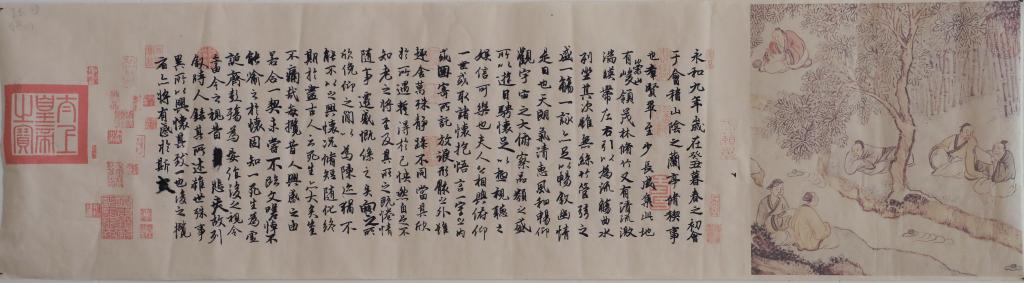 永和九年歲在癸丑暮春之初會
于會稽山陰之蘭亭脩稧事
也羣賢畢至少長咸集此地
有崇山峻領茂林脩竹又有清流激
湍暎帶左右引以為流觴曲水
列坐其次雖無絲竹管弦之
盛一觴一詠亦足以暢敘幽情
是日也天朗氣清惠風和暢仰
觀宇宙之大俯察品類之盛
所以遊目騁懷足以極視聽之
娛信可樂也夫人之相與俯仰
一世或取諸懷抱悟言一室之內
或因寄所託放浪形骸之外雖
趣舍萬殊靜躁不同當其欣
於所遇蹔得於己怏然自足不
知老之將至及其所之既惓情
隨事遷感慨係之矣向之所
欣俛仰之閒以為陳迹猶不
能不以之興懷況脩短隨化終
期於盡古人云死生亦大矣豈
不痛哉每攬昔人興感之由
若合一契未嘗不臨文嗟悼不
能喻之於懷固知一死生為虛
誕齊彭殤為妄作後之視今
亦由今之視昔悲夫故列
敘時人錄其所述雖世殊事
異所以興懷其致一也後之攬
者亦將有感於斯文
太上
皇帝
之寶